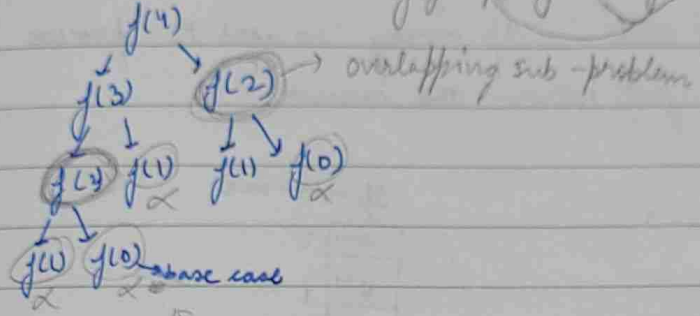 f(4)
f(3) f(2) → overlapping sub-problem
f(2) f(1) f(1) f(0)
α α
f(1) f(0) → base case
α α